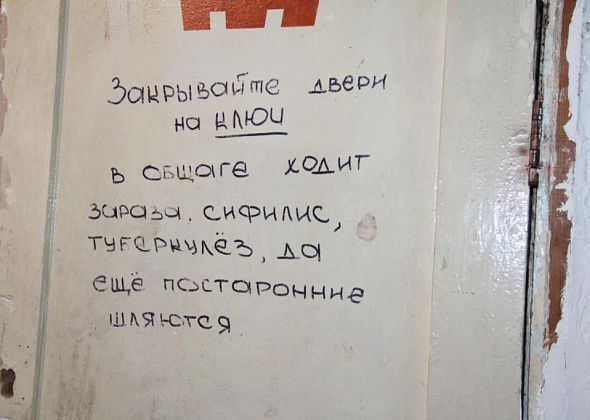 Закрывайте двери
на ключи
в общаге ходит
зараза. сифилис,
туберкулёз, да
ещё постаронние
шляются.